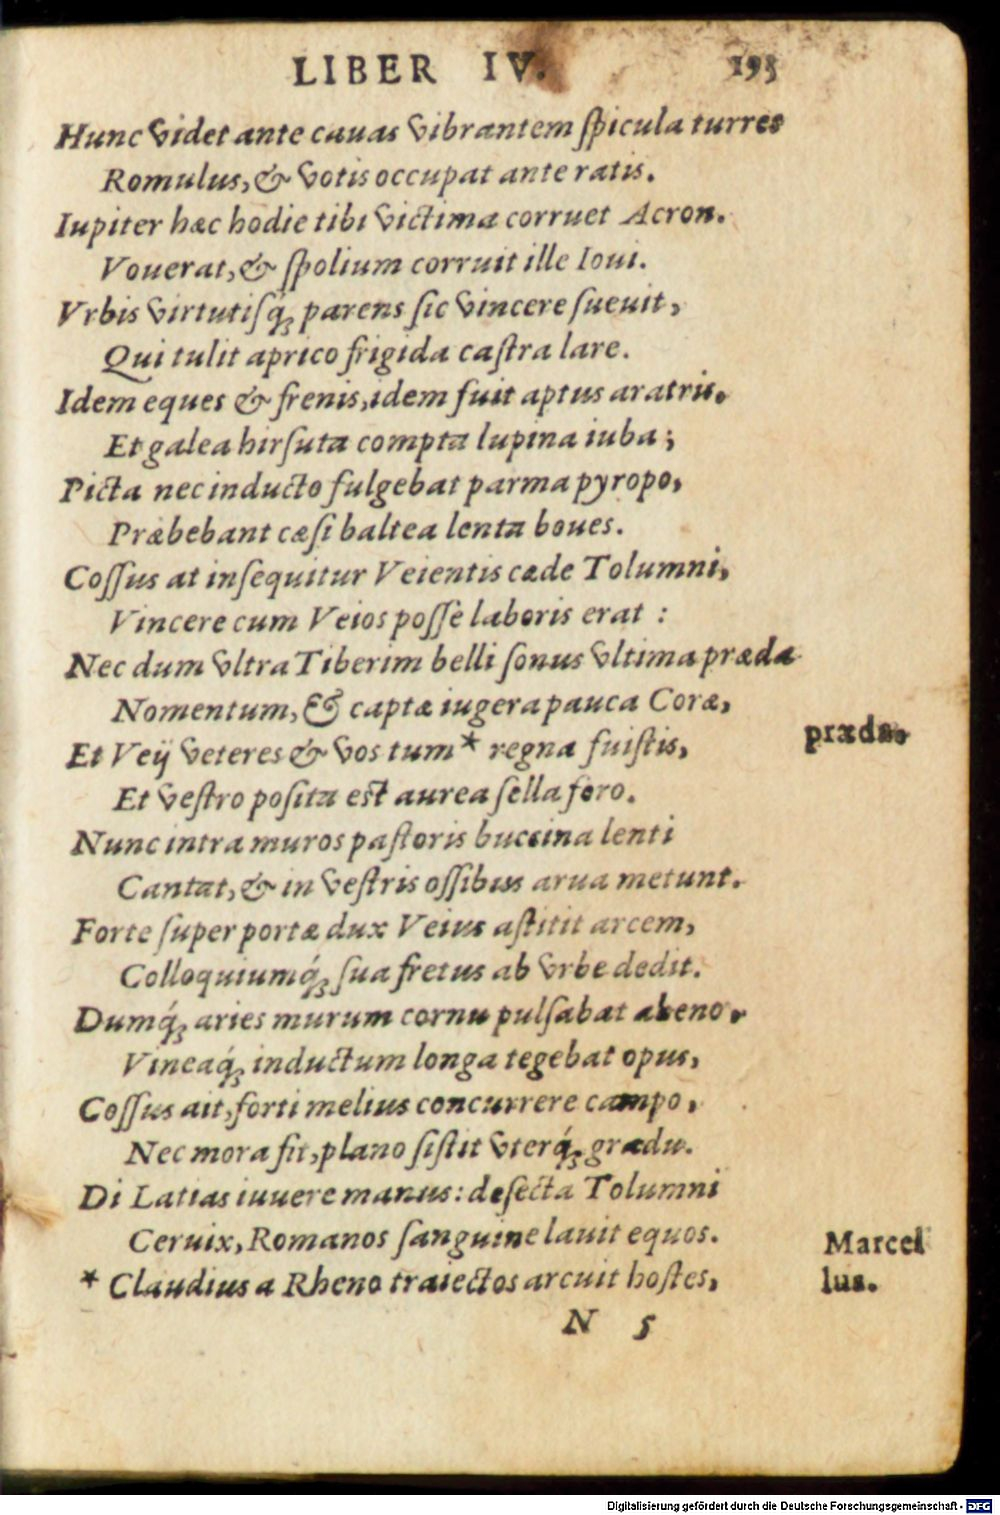 LIBER IV. 193
Hunc videt ante cauas vibrantem ſpicula turres
Romulus, & votis occupat ante ratis.
Iupiter hæc hodie tibi victima corruet Acron.
Vouerat, & ſpolium corruit ille Ioui.
Vrbis virtutiſq́ꝫ parens ſic vincere ſueuit,
Qui tulit aprico frigida caſtra lare.
Idem eques & frenis, idem fuit aptus aratris.
Et galea hirſuta compta lupina iuba;
Picta nec inducto fulgebat parma pyropo,
Præbebant cæſi baltea lenta boues.
Coſſus at inſequitur Veientis cæde Tolumni,
Vincere cum Veios poſſe laboris erat :
Nec dum vltra Tiberim belli ſonus vltima præda
Nomentum, & captæ iugera pauca Coræ,
Et Veÿ veteres & vos tum * regna fuiſtis,
præda.
Et veſtro poſita eſt aurea ſella foro.
Nunc intra muros paſtoris buccina lenti
Cantat, & in veſtris oſſibus arua metunt.
Forte ſuper portæ dux Veius aſtitit arcem,
Colloquiumq́ꝫ ſua fretus ab vrbe dedit.
Dumq́ꝫ aries murum cornu pulſabat aheno.
Vineaq́ꝫ inductum longa tegebat opus,
Coſſus ait, forti melius concurrere campo,
Nec mora fit, plano ſiſtit vterq́ꝫ gradu.
Di Latias iuuere manus: deſecta Tolumni
Ceruix, Romanos ſanguine lauit equos.
* Claudius a Rheno traiectos arcuit hoſtes,
Marcel
lus.
N 5
Digitalisierung gefördert durch die Deutsche Forschungsgemeinschaft - DFG